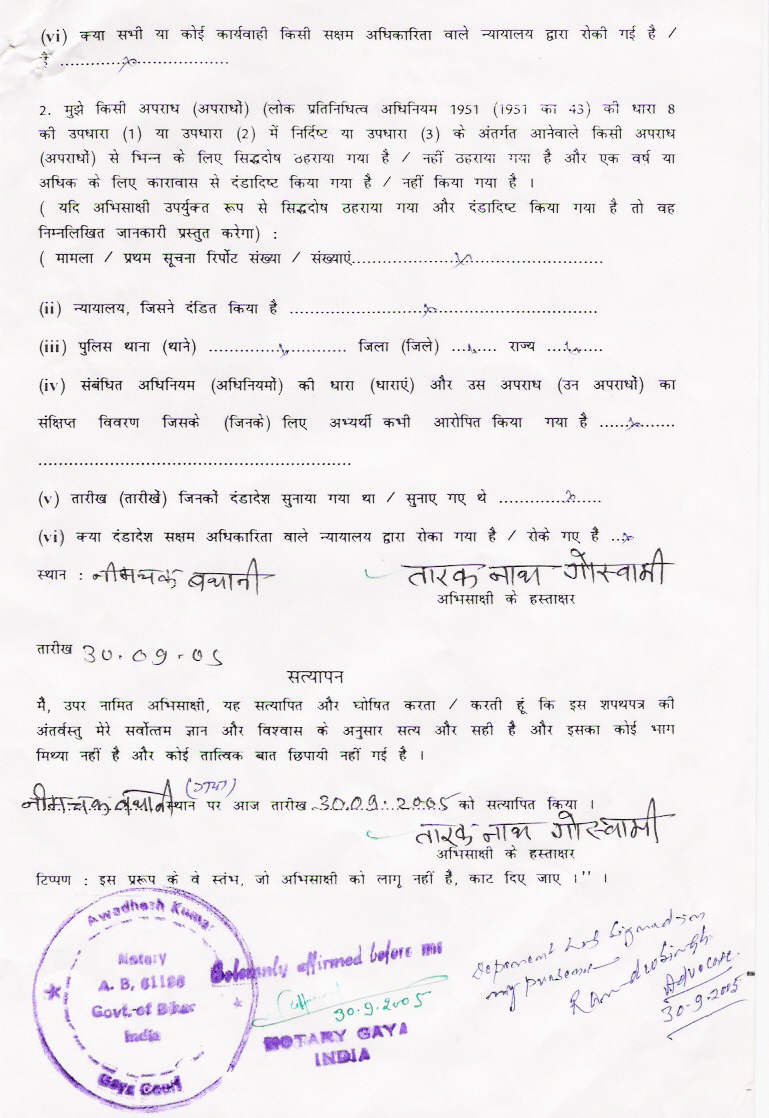 (vi) क्या सभी या कोई कार्यवाही किसी सक्षम अधिकारिता वाले न्यायालय द्वारा रोकी गई है /
है ............x..................
2. मुझे किसी अपराध (अपराधों) (लोक प्रतिनिधित्व अधिनियम 1951 (1951 का 43) की धारा 8
की उपधारा (1) या उपधारा (2) में निर्दिष्ट या उपधारा (3) के अंतर्गत आनेवाले किसी अपराध
(अपराधों) से भिन्न के लिए सिद्धदोष ठहराया गया है / नहीं ठहराया गया है और एक वर्ष या
अधिक के लिए कारावास से दंडादिष्ट किया गया है / नहीं किया गया है ।
( यदि अभिसाक्षी उपर्युक्त रूप से सिद्धदोष ठहराया गया और दंडादिष्ट किया गया है तो वह
निम्नलिखित जानकारी प्रस्तुत करेगा) :
( मामला / प्रथम सूचना रिर्पोट संख्या / संख्याएं....................x.........................
(ii) न्यायालय, जिसने दंडित किया है ..........................x..............................
(iii) पुलिस थाना (थाने) ..............x............. जिला (जिले) ...x..... राज्य ...x.....
(iv) संबंधित अधिनियम (अधिनियमों) की धारा (धाराएं) और उस अपराध (उन अपराधों) का
संक्षिप्त विवरण जिसके (जिनके) लिए अभ्यर्थी कभी आरोपित किया गया है .....x........
..............................................................
(v) तारीख (तारीखें) जिनको दंडादेश सुनाया गया था / सुनाए गए थे .............x.....
(vi) क्या दंडादेश सक्षम अधिकारिता वाले न्यायालय द्वारा रोका गया है / रोके गए है ...x
स्थान : नीमचक बथानी तारक नाथ गोस्वामी
अभिसाक्षी के हस्ताक्षर
तारीख 30.09.05
सत्यापन
मैं, उपर नामित अभिसाक्षी, यह सत्यापित और घोषित करता / करती हूं कि इस शपथपत्र की
अंतर्वस्तु मेरे सर्वोत्तम ज्ञान और विश्वास के अनुसार सत्य और सही है और इसका कोई भाग
मिथ्या नहीं है और कोई तात्विक बात छिपायी नहीं गई है ।
(गया)
नीमचक बथानी स्थान पर आज तारीख 30.09.2005 को सत्यापित किया ।
तारक नाथ गोस्वामी
अभिसाक्षी के हस्ताक्षर
टिप्पण : इस प्ररूप के वे स्तंभ, जो अभिसाक्षी को लागू नहीं है, काट दिए जाए ।'' ।
Awadhesh Kumar
Notary
A. B, 61186
Govt. of Bihar
India
Gaya Court
Solemnly affirmed before me
30.9.2005
NOTARY GAYA
INDIA
Deponent has signed in
my presence
Ramdeo Singh
Advocate
30-9-2005